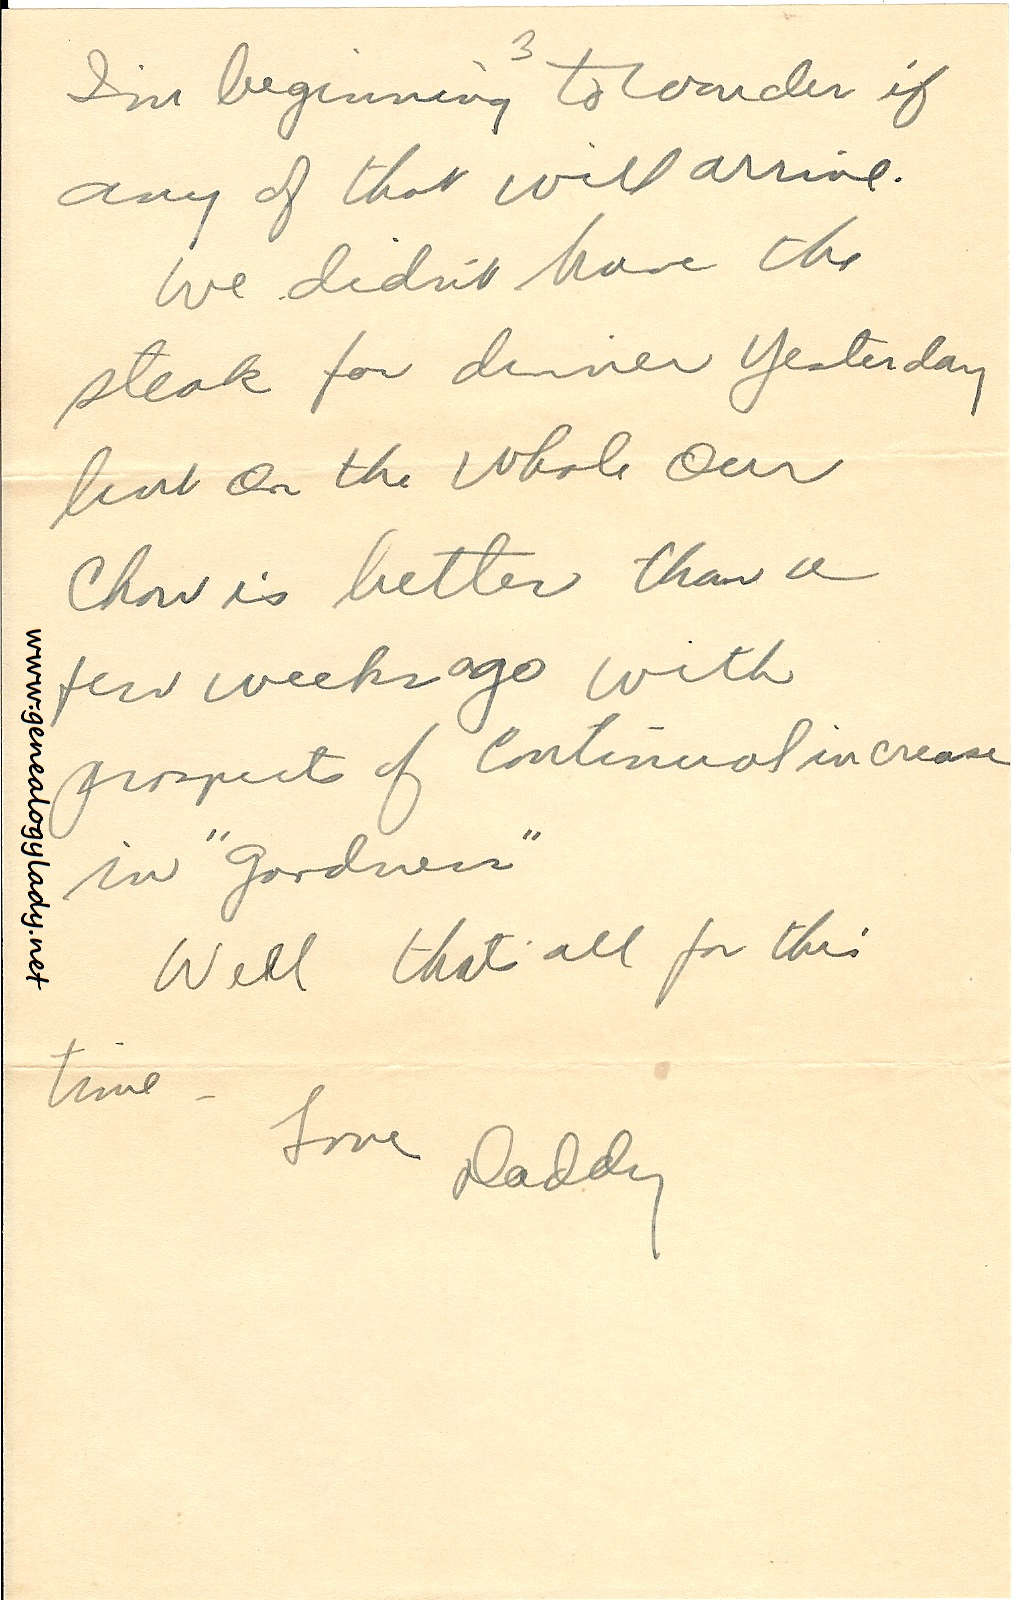 3
I'm beginning to wonder if
any of that will arrive.
We didn't have the
steak for dinner yesterday
but on the whole our
Chow is better than a
few weeks ago with
prospects of continual increase
in "goodness"
Well that's all for this
time –
Love Daddy
www.genealogylady.net